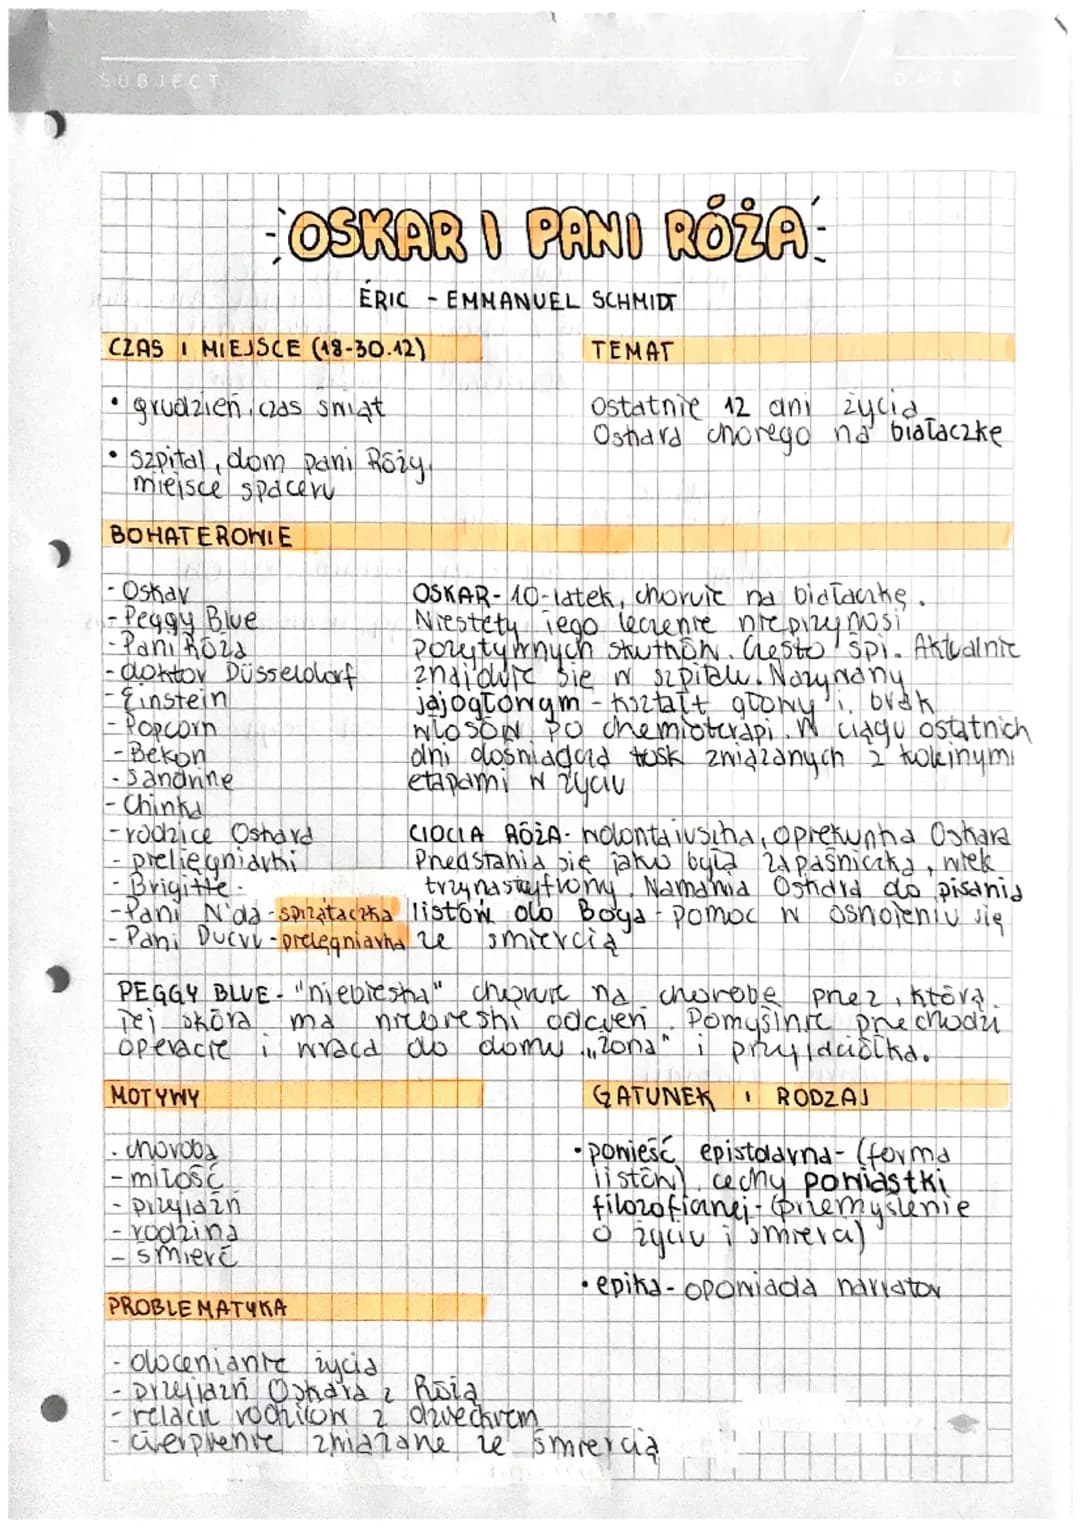 SUBJECT
DATE
OSKAR I PANI RÓŻA
ÉRIC - EMMANUEL SCHMIDT
CZAS I MIEJSCE (18-30.12)
• grudzień, czas świąt
• szpital, dom pani Róży,
miejsce spaceru
TEMAT
Ostatnie 12 dni życia
Oskara chorego na białaczkę
BOHATEROWIE
- Oskar
- Peggy Blue
- Pani Róża
- doktor Düsseldorf
- Einstein
- Popcorn
- Bekon
- Sandrine
- Chinka
- rodzice Oskara
- pielięgniarki
- Brigitte
- Pani N'da - sprzątaczka
- Pani Ducru - pielęgniarka
OSKAR - 10-latek, choruje na białaczkę.
Niestety jego leczenie nie przynosi
pozytywnych skutków. Często śpi. Aktualnie
znajduje się w szpitalu. Nazywany
jajogłowym - kształt głowy i brak
włosów po chemioterapi. W ciągu ostatnich
dni doświadcza trosk związanych z kolejnymi
etapami w życiu
CIOCIA RÓŻA - wolontariuszka, opiekunka Oskara
Przedstawia się jako była zapaśniczka, wiek
trzynastyfrony. Namawia Oskara do pisania
listów do Boga - pomoc w oswojeniu się
ze śmiercią
PEGGY BLUE - "niebieska" choruje na chorobę przez, którą
jej skóra ma niebieski odcień. Pomyślnie przechodzi
operacje i wraca do domu. „żona" i przyjaciółka.
MOTYWY
- choroba
- miłość
- przyjaźń
- rodzina
- śmierć
GATUNEK I RODZAJ
• powieść epistolarna - (forma
listów), cechy powiastki
filozoficznej - (przemyślenie
o życiu i śmierci)
• epika - opowiada narrator
PROBLEMATYKA
- docenianie życia
- przyjaźń Oskara z Różą
- relacje rodziców z dzieckiem
- cierpienie związane ze śmiercią